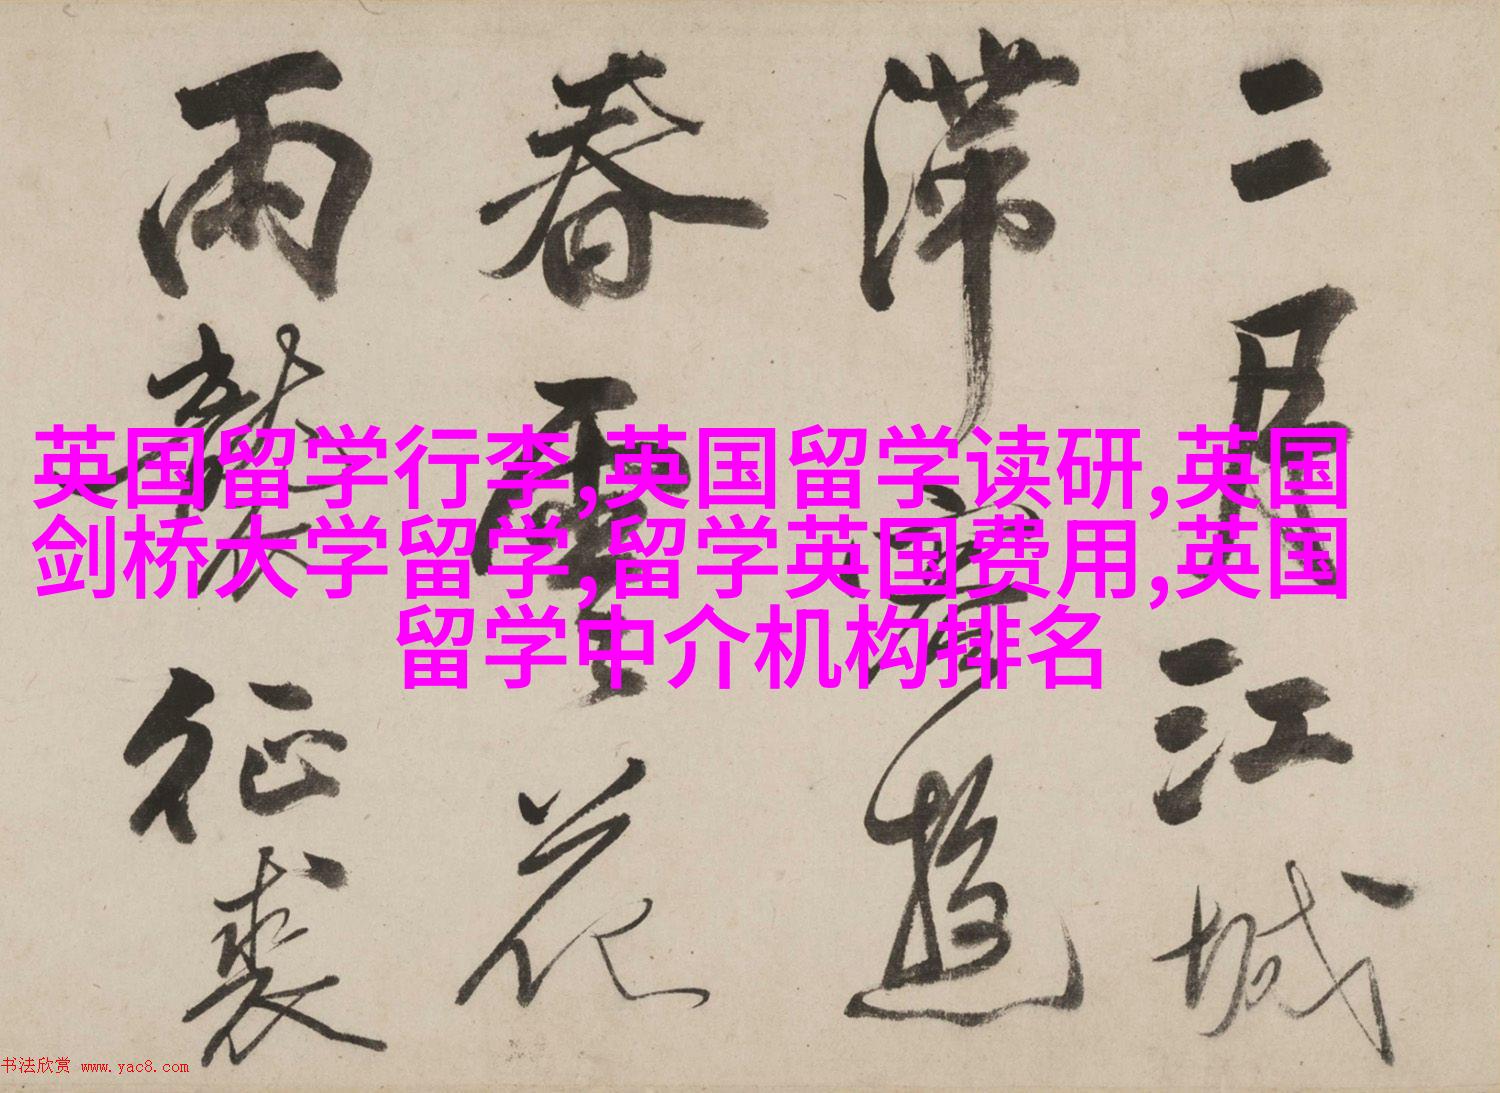 二月江城
滯遊
春雲花
雨襲征裘
英国留学行李,英国留学读研,英国
剑桥大学留学,留学英国费用,英国
留学中介机构排名
书法欣赏 www.yac8.com